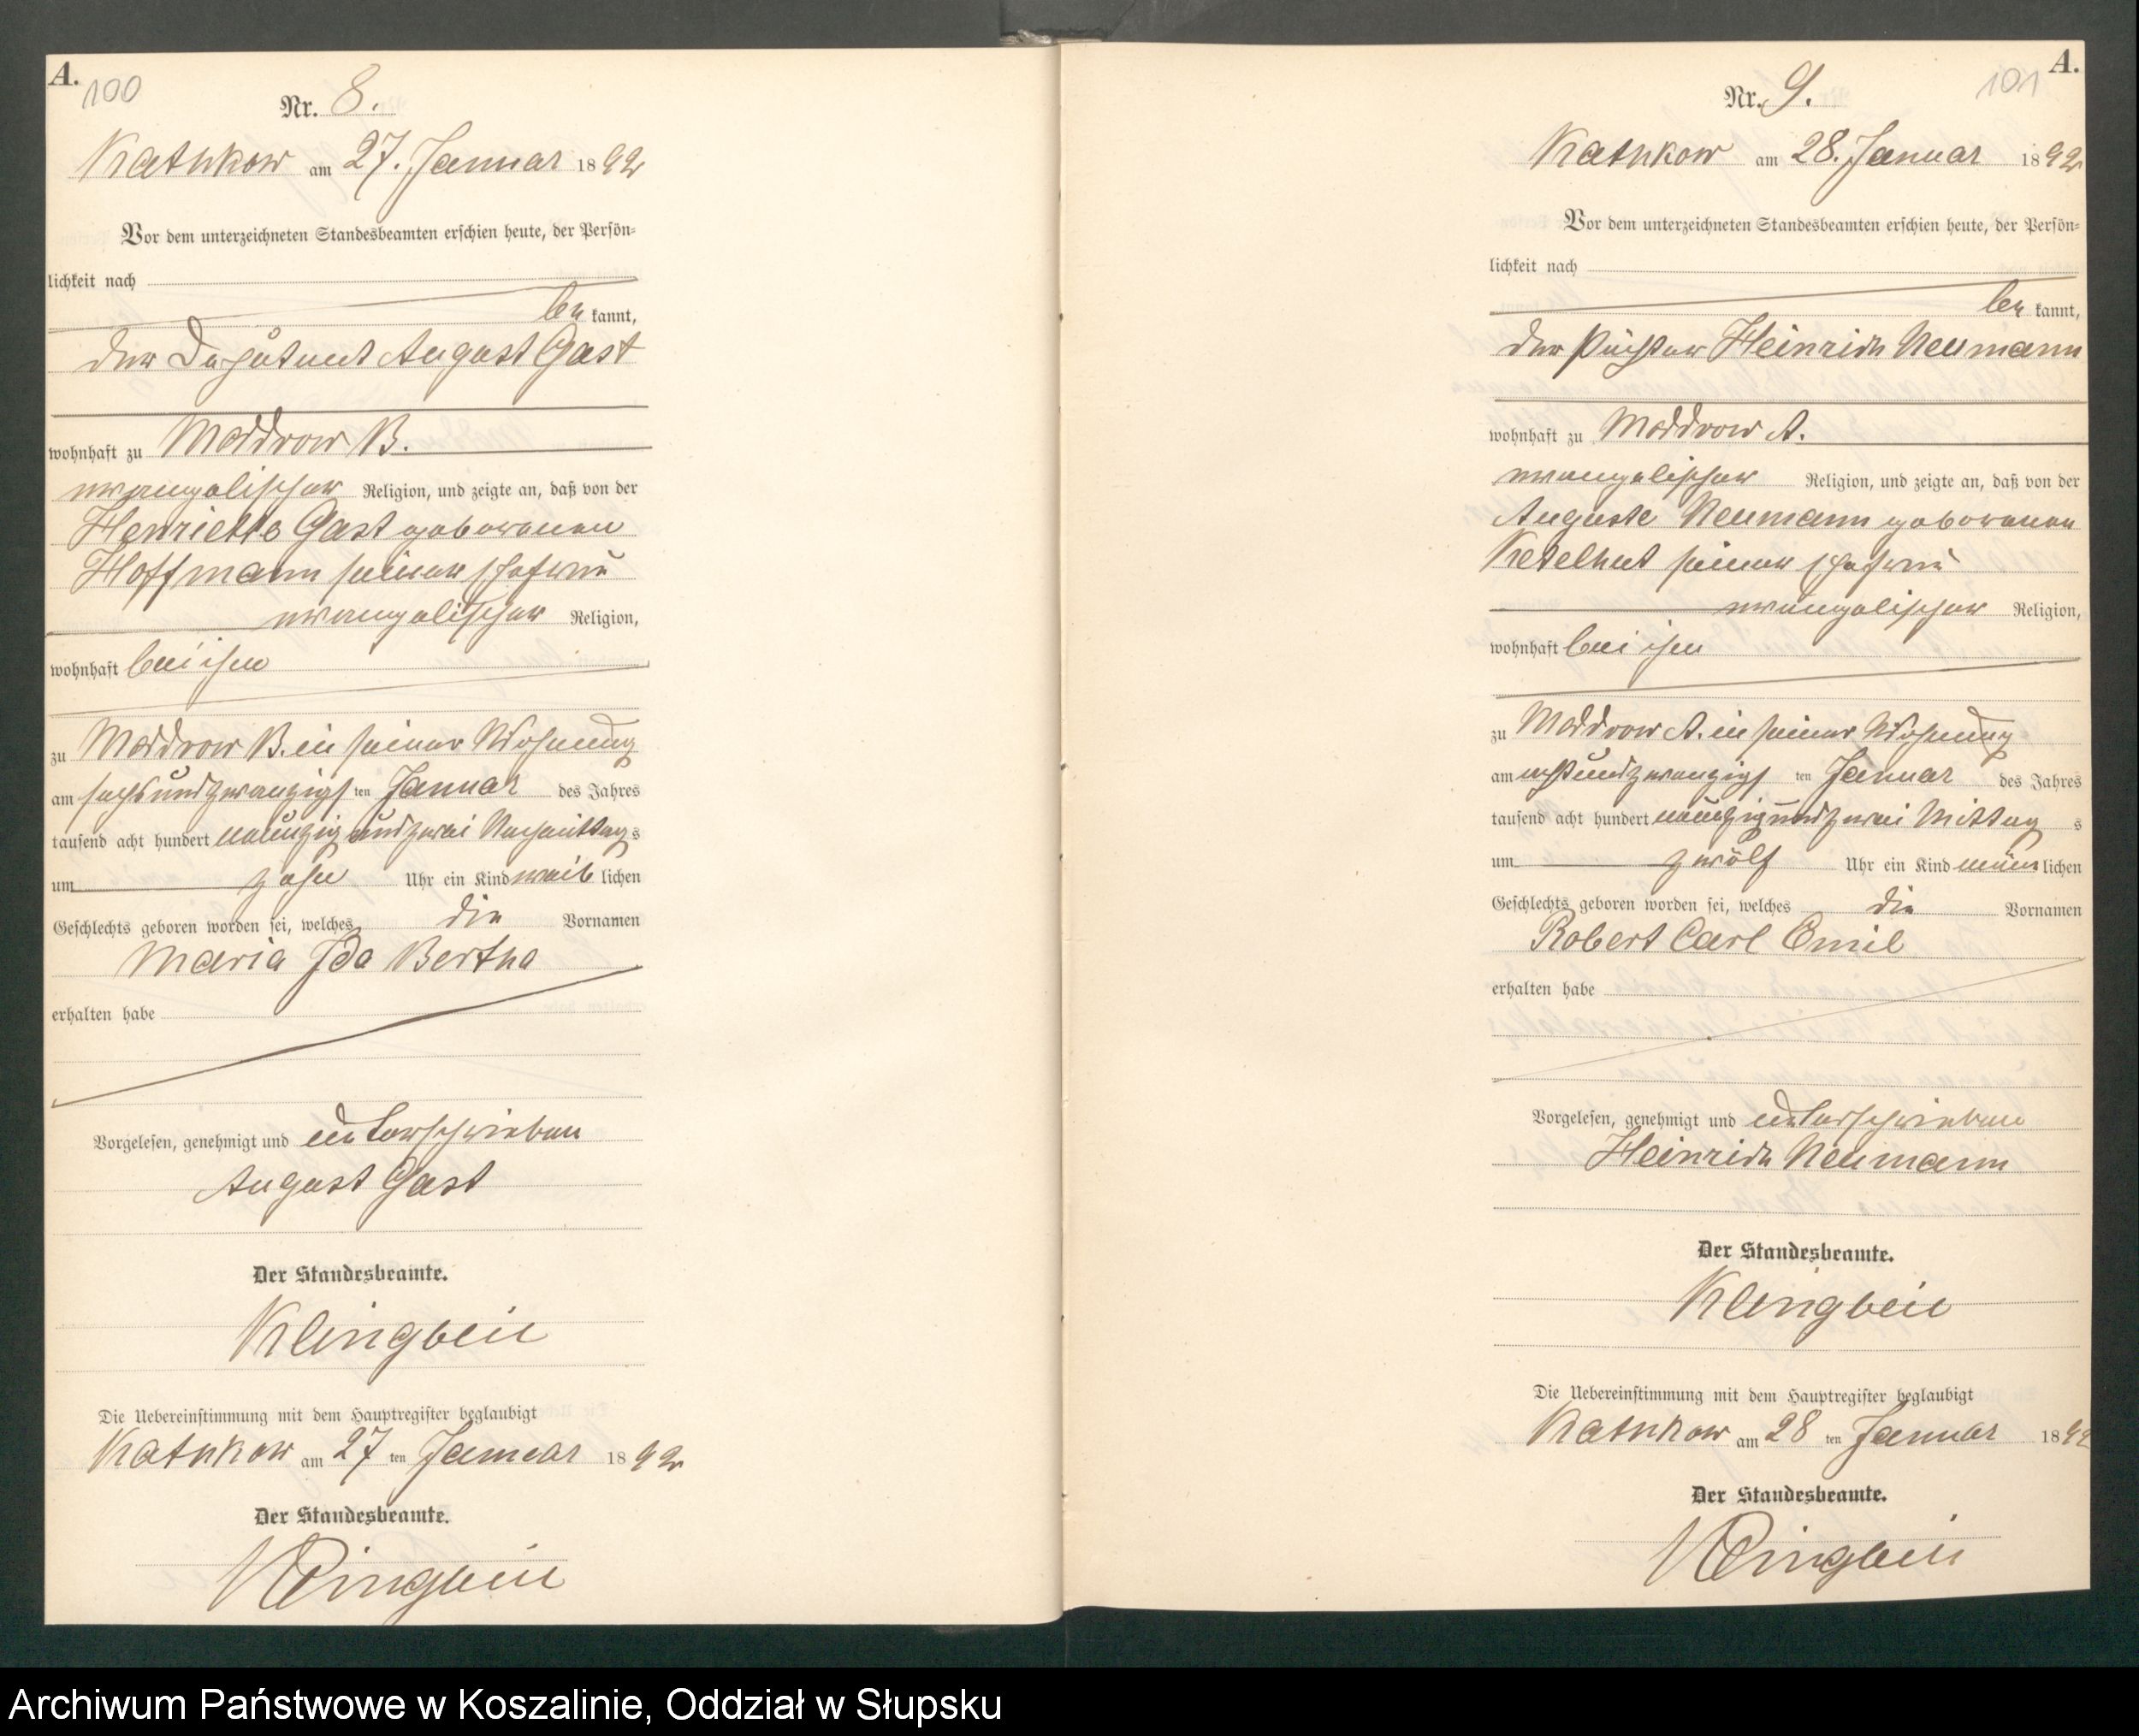 A.
100
Nr. 8.
Kathkow am 27. Januar 1892
Vor dem unterzeichneten Standesbeamten erschien heute, der Persön-
lichkeit nach
be kannt,
der August Gast
wohnhaft zu Moddrow B.
evangelischer Religion, und zeigte an, daß von der
Henriette Gast geborenen
Hoffmann seiner Ehefrau
evangelischer Religion,
wohnhaft bei ihm
zu Moddrow B. in seiner Wohnung
am sechsundzwanzigs ten Januar des Jahres
tausend acht hundert neunzig und zwei Nachmittag s
um zehn Uhr ein Kind weib lichen
Geschlechts geboren worden sei, welches die Vornamen
Maria Ida Bertha
erhalten habe
Vorgelesen, genehmigt und unterschrieben
August Gast
Der Standesbeamte.
Klingbeil
Die Uebereinstimmung mit dem Hauptregister beglaubigt
Kathkow am 27 ten Januar 1892
Der Standesbeamte.
Klingbeil
A.
101
Nr. 9.
Kathkow am 28. Januar 1892
Vor dem unterzeichneten Standesbeamten erschien heute, der Persön-
lichkeit nach
be kannt,
der Heinrich Neumann
wohnhaft zu Moddrow A.
evangelischer Religion, und zeigte an, daß von der
Auguste Neumann geborenen
Ketelhut seiner Ehefrau
evangelischer Religion,
wohnhaft bei ihm
zu Moddrow A. in seiner Wohnung
am achtundzwanzigs ten Januar des Jahres
tausend acht hundert neunzig und zwei Mittag s
um zwölf Uhr ein Kind männ lichen
Geschlechts geboren worden sei, welches die Vornamen
Robert Carl Emil
erhalten habe
Vorgelesen, genehmigt und unterschrieben
Heinrich Neumann
Der Standesbeamte.
Klingbeil
Die Uebereinstimmung mit dem Hauptregister beglaubigt
Kathkow am 28 ten Januar 1892
Der Standesbeamte.
Klingbeil
Archiwum Państwowe w Koszalinie, Oddział w Słupsku